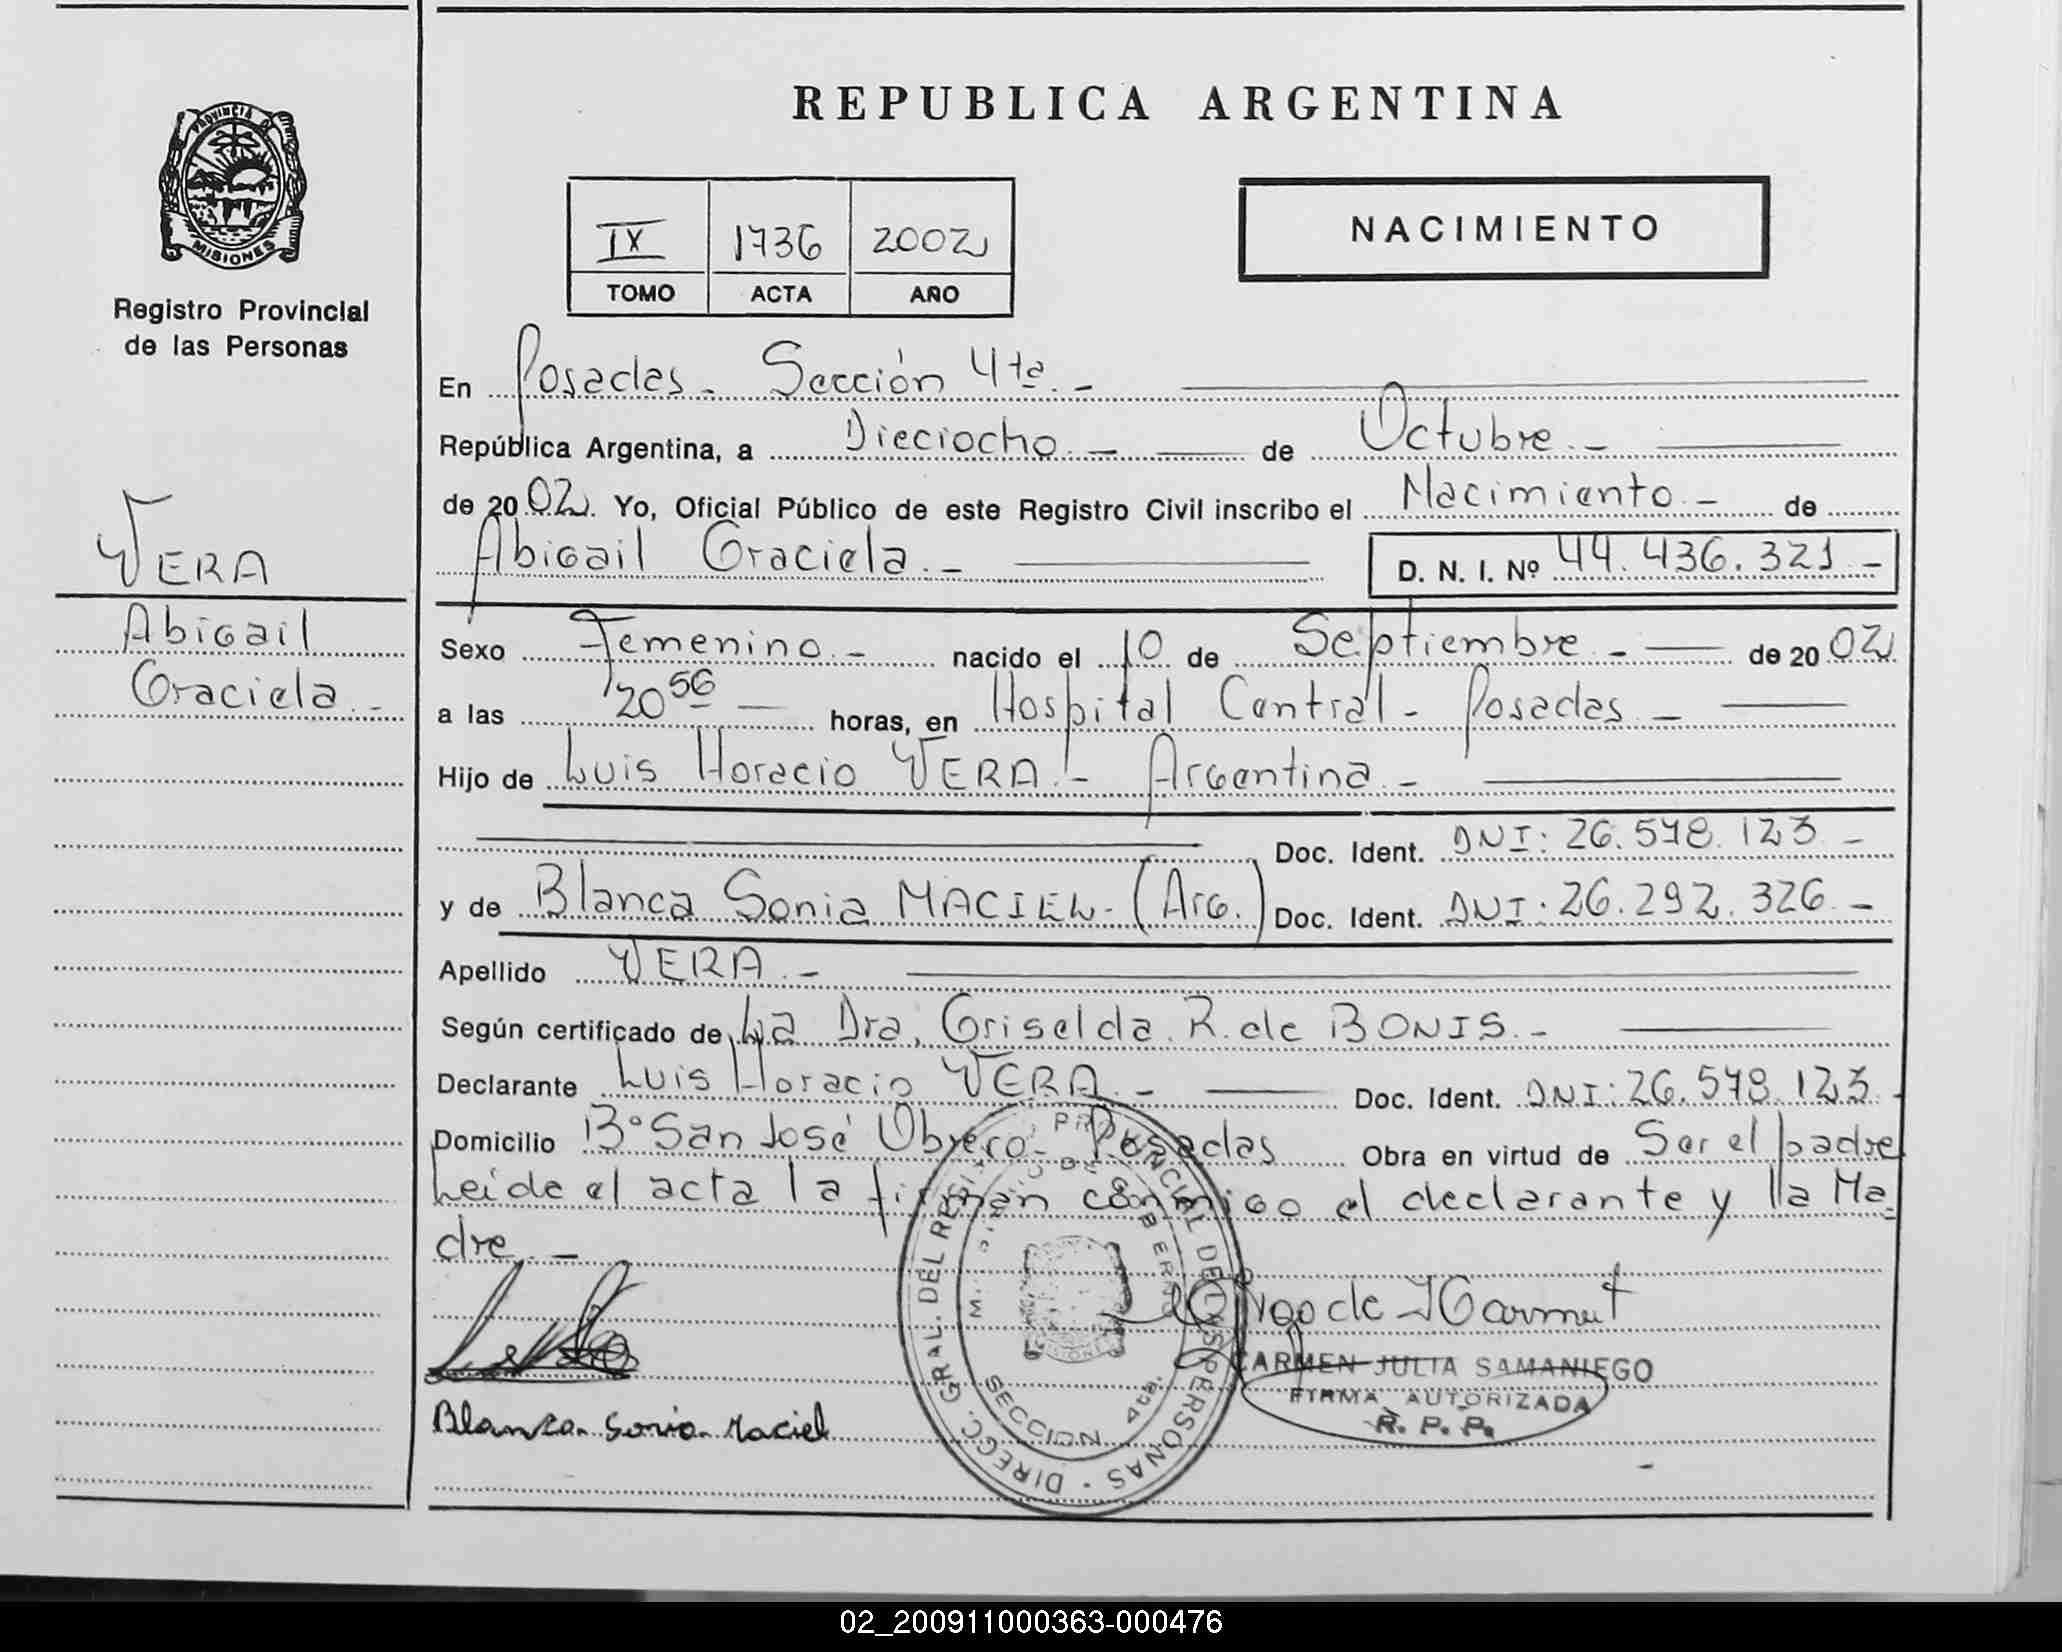 PROVINCIA DE
MISIONES
Registro Provincial
de las Personas
VERA
Abigail
Graciela.-
REPUBLICA ARGENTINA
IX 1736 2002
TOMO ACTA AÑO
NACIMIENTO
En Posadas - Sección 4ta.-
República Argentina, a Dieciocho.- de Octubre.-
de 2002. Yo, Oficial Público de este Registro Civil inscribo el Nacimiento.- de
Abigail Graciela.- D. N. I. Nº 44.436.321.-
Sexo Femenino.- nacido el 10 de Septiembre.- de 2002
a las 20 56 - horas, en Hospital Central - Posadas.-
Hijo de Luis Horacio VERA.- Argentina.-
Doc. Ident. DNI: 26.578.123.-
y de Blanca Sonia MACIEL.- (Arg.) Doc. Ident. DNI: 26.292.326.-
Apellido VERA.-
Según certificado de La Dra. Griselda R. de BONIS.-
Declarante Luis Horacio VERA.- Doc. Ident. DNI: 26.578.123.-
Domicilio Bº San José Obrero - Posadas Obra en virtud de Ser el padre
Leida el acta la firman conmigo el declarante y la Ma-
dre.-
DIRECC. GRAL. DEL REGISTRO PROVINCIAL DE LAS PERSONAS
MINISTERIO DE GOBIERNO
MISIONES
SECCION 4ta.
CARMEN JULIA SAMANIEGO
FIRMA AUTORIZADA
R. P. P.
Blanca Sonia Maciel
02_200911000363-000476